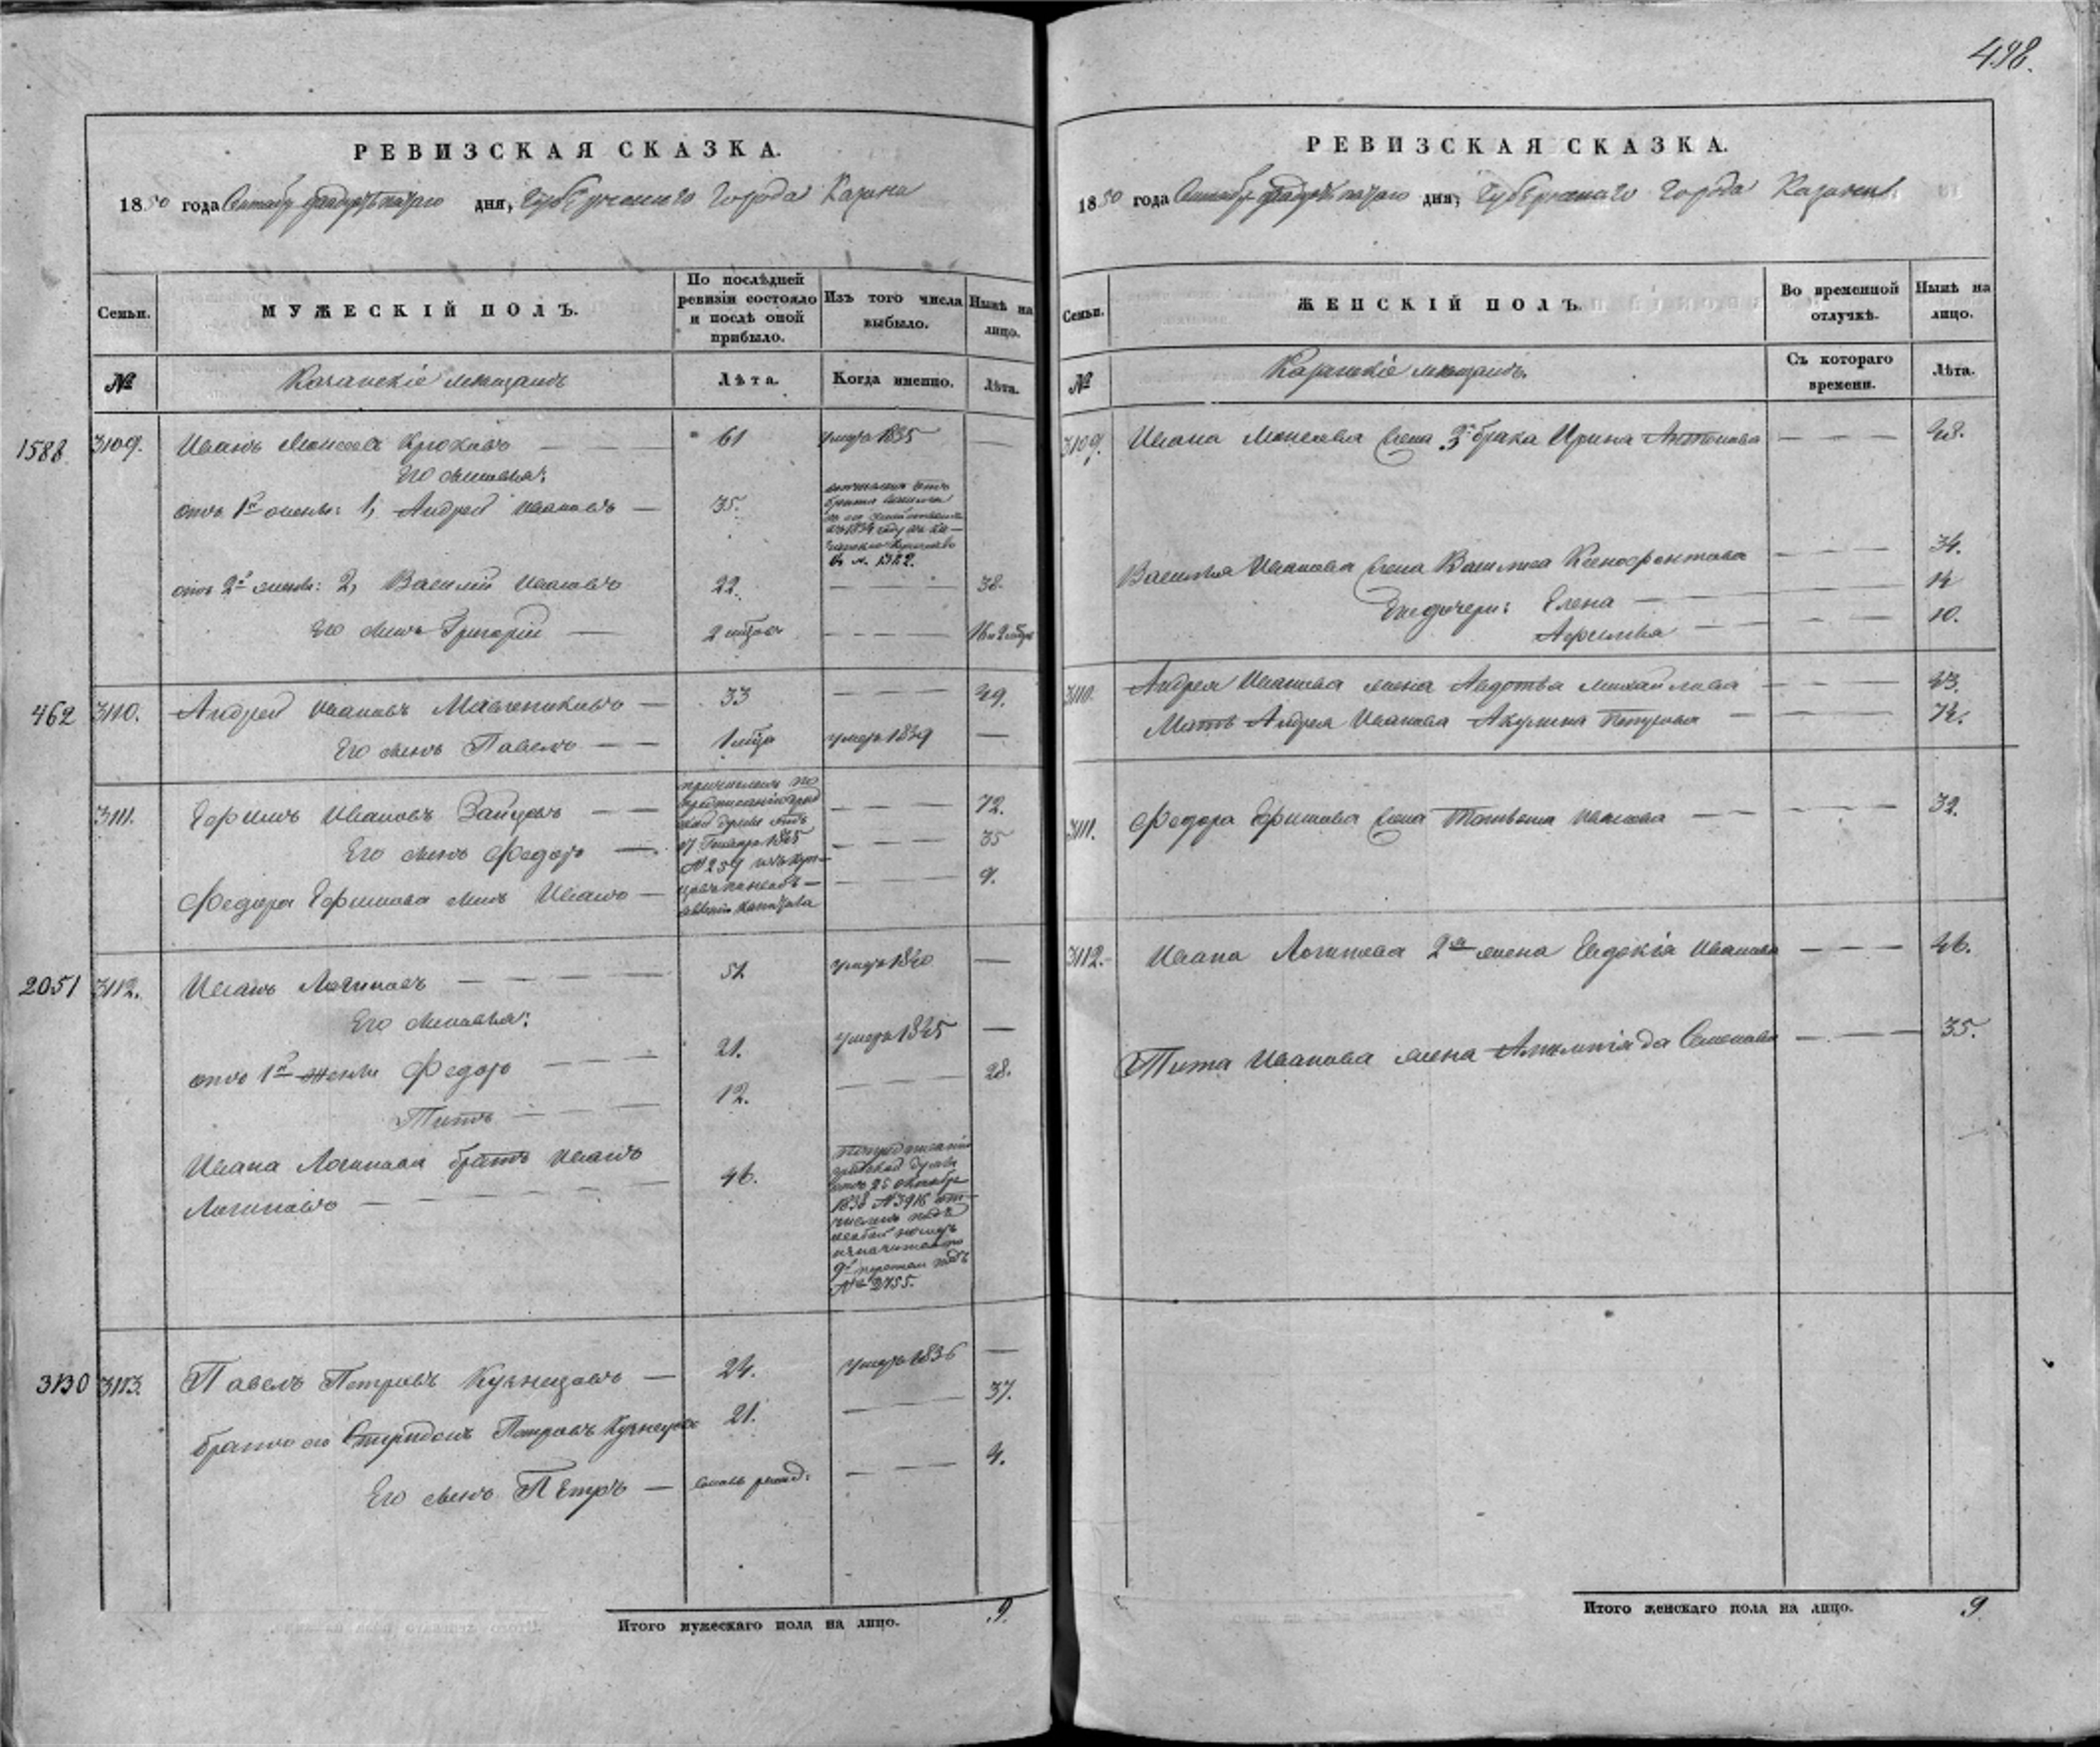 498.
РЕВИЗСКАЯ СКАЗКА.
1850 года Октября двадцать пятаго дня, Губернскаго города Казани
Семьи.
МУЖЕСКІЙ ПОЛЪ.
По послѣдней ревизіи состояло и послѣ оной прибыло.
Изъ того числа выбыло.
Нынѣ на лицо.
№
Казанскіе мѣщане
Лѣта.
Когда именно.
Лѣта.
1588 3109. Иванъ Моисеевъ Крюковъ — 61 умеръ 1835 —
Его сыновья:
отъ 1й жены: 1, Андрей Ивановъ — 35.
въ 1834 году
№ 1322.
отъ 2й жены: 2, Василій Ивановъ 22. — — — 38.
Его сынъ Григорій — 2 мѣсяцъ — — — 16 и 2 мѣсяц
462 3110. Андрей Ивановъ — 33 — — — 49.
Его сынъ Павелъ — — 1 мѣсца умеръ 1839 —
3111. Ефимъ Ивановъ Зайцовъ — — 72.
причисленъ по
предписанію град
ской думы отъ
17 Генваря 1845
№ 239 изъ куп—
Его сынъ Федоръ — — — — 35
Федора Ефимова сынъ Иванъ — — — — 9.
2051 3112. Иванъ Логиновъ — — — 51 умеръ 1840 —
Его сыновья:
отъ 1й жены Федоръ — — 21. умеръ 1845 —
Титъ — — — 12. — — — 28.
Ивана Логинова братъ Иванъ
Логиновъ — — — — 46.
По предписанію
градской думы
отъ 25 Октября
1838 № 3916 от—
численъ подъ
особый номеръ
№ 2755.
3130 3113. Павелъ Петровъ Кузнецовъ — 24. умеръ 1836 —
братъ его Спиридонъ Петровъ Кузнецовъ 21. — — — 37.
Его сынъ Петръ — — — — 4.
Итого мужескаго пола на лицо. 9.
РЕВИЗСКАЯ СКАЗКА.
1850 года Октября двадцать пятаго дня, Губернскаго города Казани
Семьи.
ЖЕНСКІЙ ПОЛЪ.
Во временной отлучкѣ.
Нынѣ на лицо.
№
Казанскіе мѣщане.
Съ котораго времени.
Лѣта.
3109. Ивана Моисеева жена 3го брака Ирина Антонова — — — 48.
Василья Иванова жена Василиса Ксенофонтова — — — 34.
Ихъ дочери: Елена — — — 14
Афимья — — — 10.
3110. Андрея Иванова жена Авдотья Михайлова — — — 43.
Мать Андрея Иванова Акулина Петрова — — — 74.
3111. Федора Ефимова жена Татьяна Иванова — — — 32.
3112. Ивана Логинова 2я жена Евдокія Иванова — — — 46.
Тита Иванова жена Олимпіада Семенова — — — 35.
Итого женскаго пола на лицо. 9